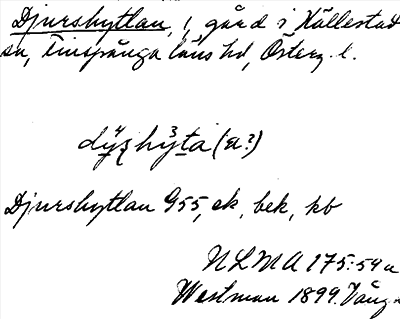 Djurshyttan, 1 gård i Hällestad
sn, Finspånga läns hd, Österg. l.
(a?)
Djurshyttan G55, ek, bek, kb
NLMA 175:59a
Westman 1899.